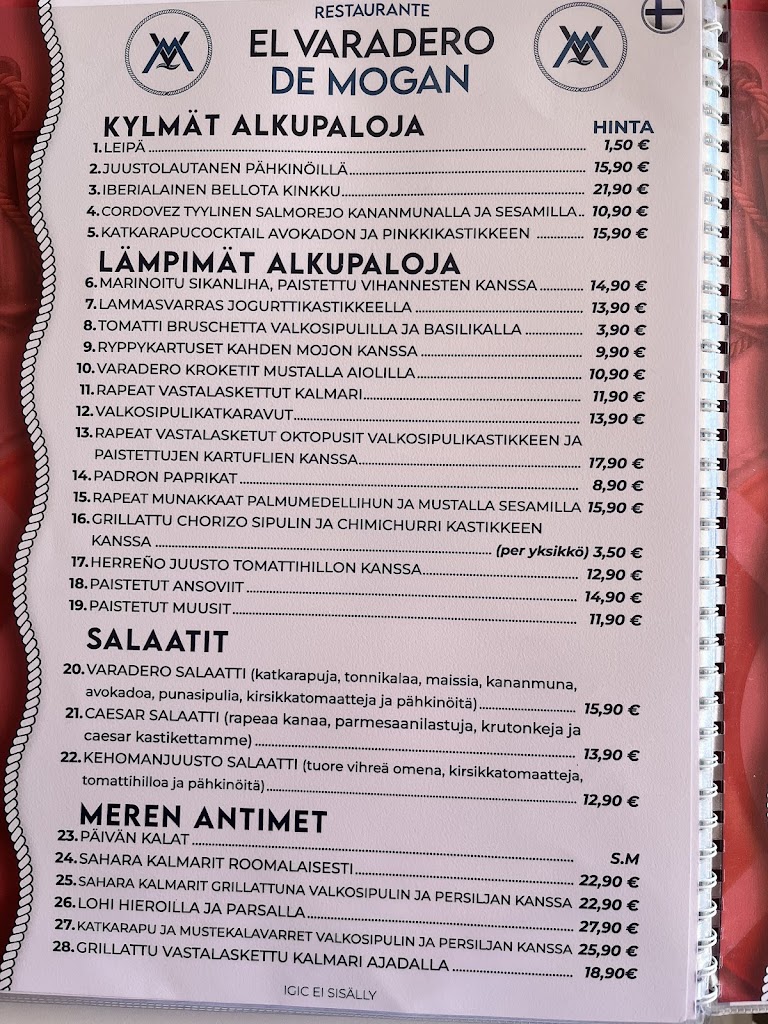 RESTAURANTE
EL VARADERO
DE MOGAN
KYLMÄT ALKUPALOJA HINTA
1. LEIPÄ 1,50 €
2. JUUSTOLAUTANEN PÄHKINÖILLÄ 15,90 €
3. IBERIALAINEN BELLOTA KINKKU 21,90 €
4. CORDOVEZ TYYLINEN SALMOREJO KANANMUNALLA JA SESAMILLA 10,90 €
5. KATKARAPUCOCKTAIL AVOKADON JA PINKKIKASTIKKEEN 15,90 €
LÄMPIMÄT ALKUPALOJA
6. MARINOITU SIKANLIHA, PAISTETTU VIHANNESTEN KANSSA 14,90 €
7. LAMMASVARRAS JOGURTTIKASTIKKEELLA 13,90 €
8. TOMATTI BRUSCHETTA VALKOSIPULILLA JA BASILIKALLA 3,90 €
9. RYPPYKARTUSET KAHDEN MOJON KANSSA 9,90 €
10. VARADERO KROKETIT MUSTALLA AIOLILLA 10,90 €
11. RAPEAT VASTALASKETTUT KALMARI 11,90 €
12. VALKOSIPULIKATKARAVUT 13,90 €
13. RAPEAT VASTALASKETUT OKTOPUSIT VALKOSIPULIKASTIKKEEN JA
PAISTETTUJEN KARTUFLIEN KANSSA 17,90 €
14. PADRON PAPRIKAT 8,90 €
15. RAPEAT MUNAKKAAT PALMUMEDELLIHUN JA MUSTALLA SESAMILLA 15,90 €
16. GRILLATTU CHORIZO SIPULIN JA CHIMICHURRI KASTIKKEEN
KANSSA (per yksikkö) 3,50 €
17. HERREÑO JUUSTO TOMATTIHILLON KANSSA 12,90 €
18. PAISTETUT ANSOVIIT 14,90 €
19. PAISTETUT MUUSIT 11,90 €
SALAATIT
20. VARADERO SALAATTI (katkarapuja, tonnikalaa, maissia, kananmuna,
avokadoa, punasipulia, kirsikkatomaatteja ja pähkinöitä) 15,90 €
21. CAESAR SALAATTI (rapeaa kanaa, parmesaanilastuja, krutonkeja ja
caesar kastikettamme) 13,90 €
22. KEHOMANJUUSTO SALAATTI (tuore vihreä omena, kirsikkatomaatteja,
tomattihilloa ja pähkinöitä) 12,90 €
MEREN ANTIMET
23. PÄIVÄN KALAT S.M
24. SAHARA KALMARIT ROOMALAISESTI 22,90 €
25. SAHARA KALMARIT GRILLATTUNA VALKOSIPULIN JA PERSILJAN KANSSA 22,90 €
26. LOHI HIEROILLA JA PARSALLA 27,90 €
27. KATKARAPU JA MUSTEKALAVARRET VALKOSIPULIN JA PERSILJAN KANSSA 25,90 €
28. GRILLATTU VASTALASKETTU KALMARI AJADALLA 18,90€
IGIC EI SISÄLLY